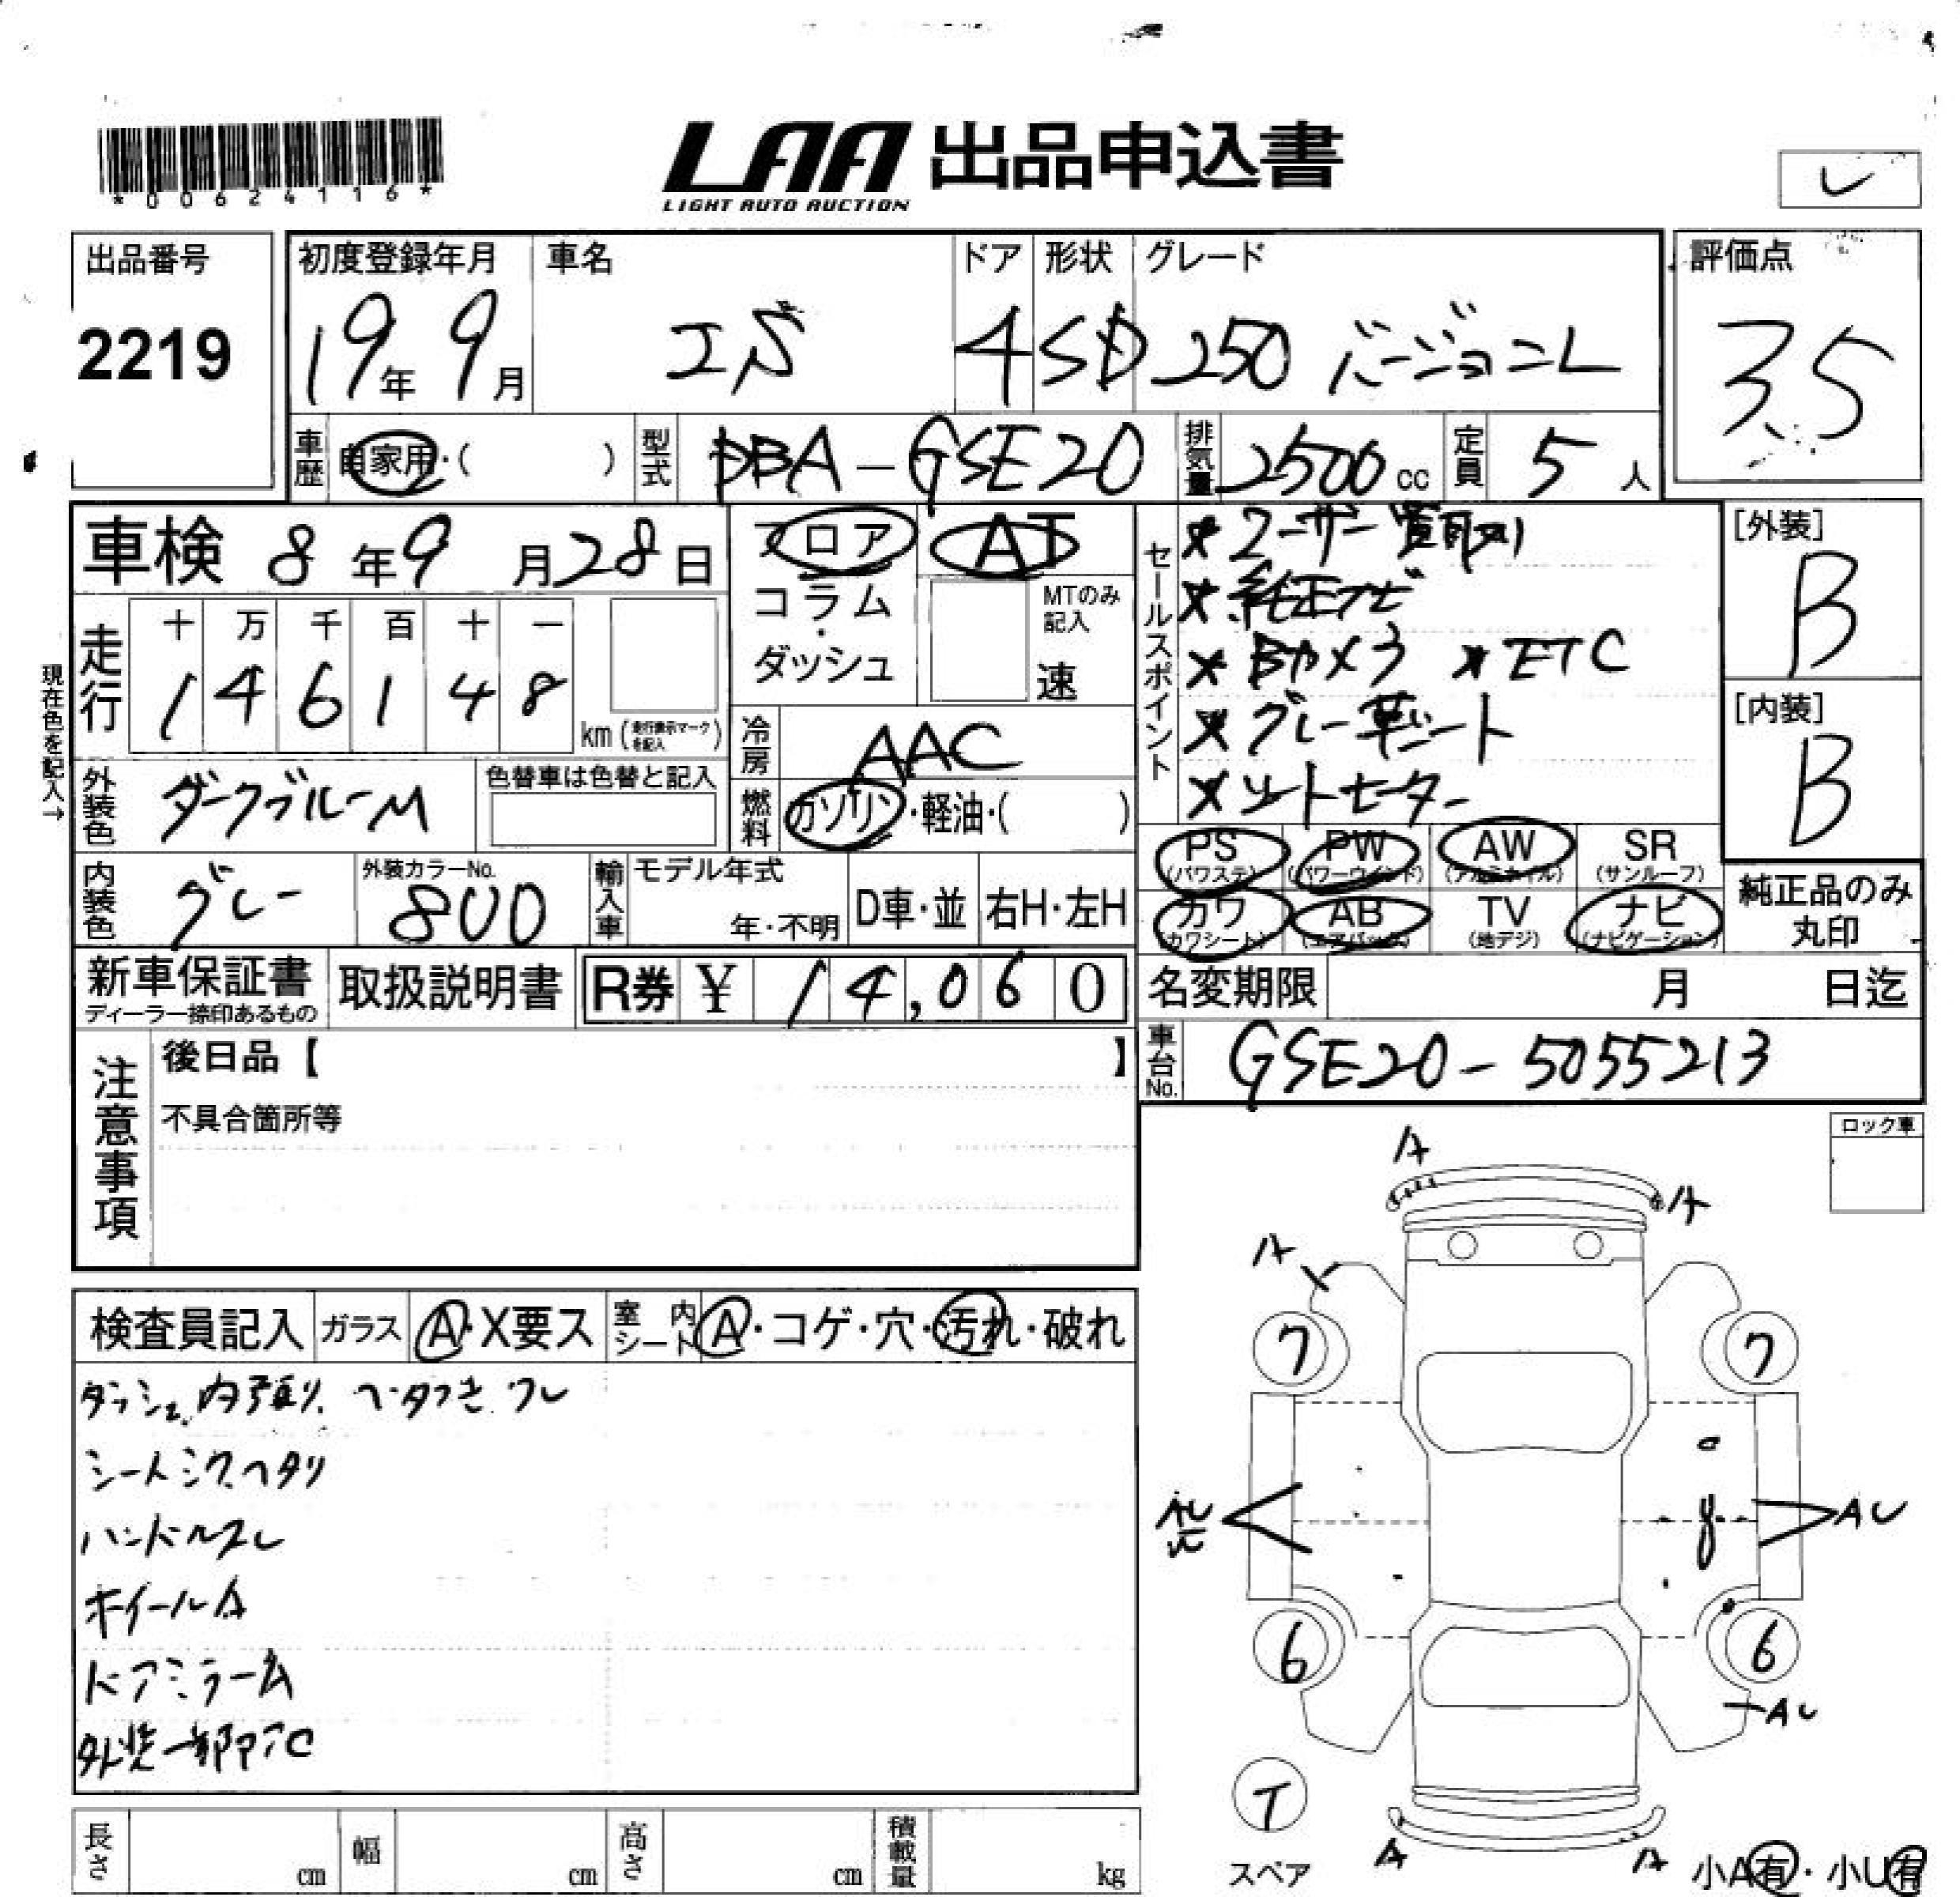 *00624116*
LAA 出品申込書
LIGHT AUTO AUCTION
レ
出品番号
2219
初度登録年月
19年 9月
車名
ドア
4
形状
SD
グレード
250 バージョンL
評価点
3.5
車歴
自家用・( )
型式
DBA-GSE20
排気量
2500 cc
定員
5人
車検 8年9月28日
フロア
コラム・ダッシュ
AT
MTのみ記入
速
セールスポイント
×ユーザー買取り
×純正ナビ
×Bカメラ ×ETC
×グレー革シート
×シートヒーター
[外装]
B
[内装]
B
現在色を記入→
走行
十 万 千 百 十 一
1 4 6 1 4 8
km(走行表示マークを記入)
冷房
AAC
外装色
ダークブルーM
色替車は色替と記入
燃料
ガソリン・軽油・( )
PS (パワステ)
PW (パワーウインド)
AW (アルミホイル)
SR (サンルーフ)
カワ (カワシート)
AB (エアバック)
TV (地デジ)
ナビ (ナビゲーション)
純正品のみ
丸印
内装色
グレー
外装カラーNo.
8U0
輸入車
モデル年式
年・不明
D車・並
右H・左H
新車保証書
ディーラー捺印あるもの
取扱説明書
R券 ¥ 14,060
名変期限 月 日迄
車台No.
GSE20-5055213
注意事項
後日品【 】
不具合箇所等
ロック車
検査員記入
ガラス
A・X要ス
室内シート
A・コゲ・穴・汚れ・破れ
ダッシュ、内張り、ベタつき ワレ
シートシワ、ヘタリ
ハンドルスレ
ホイールA
ドアミラーA
外装一部アセ
A
A
A
7
7
AU
AU
6
6
AU
T
スペア
A
A
小A有・小U有
長さ cm
幅 cm
高さ cm
積載量 kg